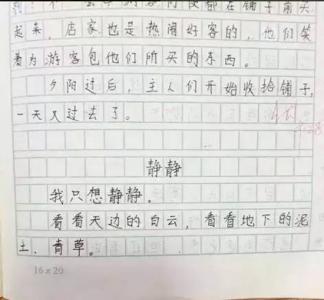 都在铺子前天
起来，店家也是热闹好客的，他们笑
着为游客包他们所买的东西。
夕阳过后，主人们开始收拾铺子，
一天又过去了。
静静
我只想静静。
看看天边的白云，看看地下的泥
土、青草。
16×20